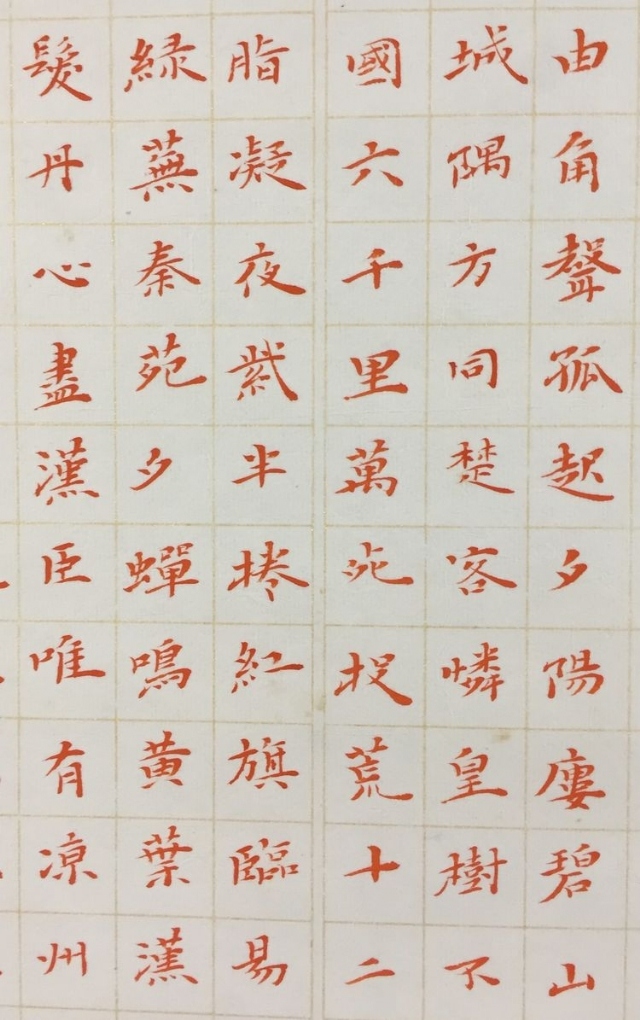 由角聲孤起夕陽廔碧山
城隅方同楚客憐皇樹不
國六千里萬死投荒十二
脂凝夜紫半捲紅旗臨易
緑蕪秦苑夕蟬鳴黄葉漢
髮丹心盡漢臣唯有凉州